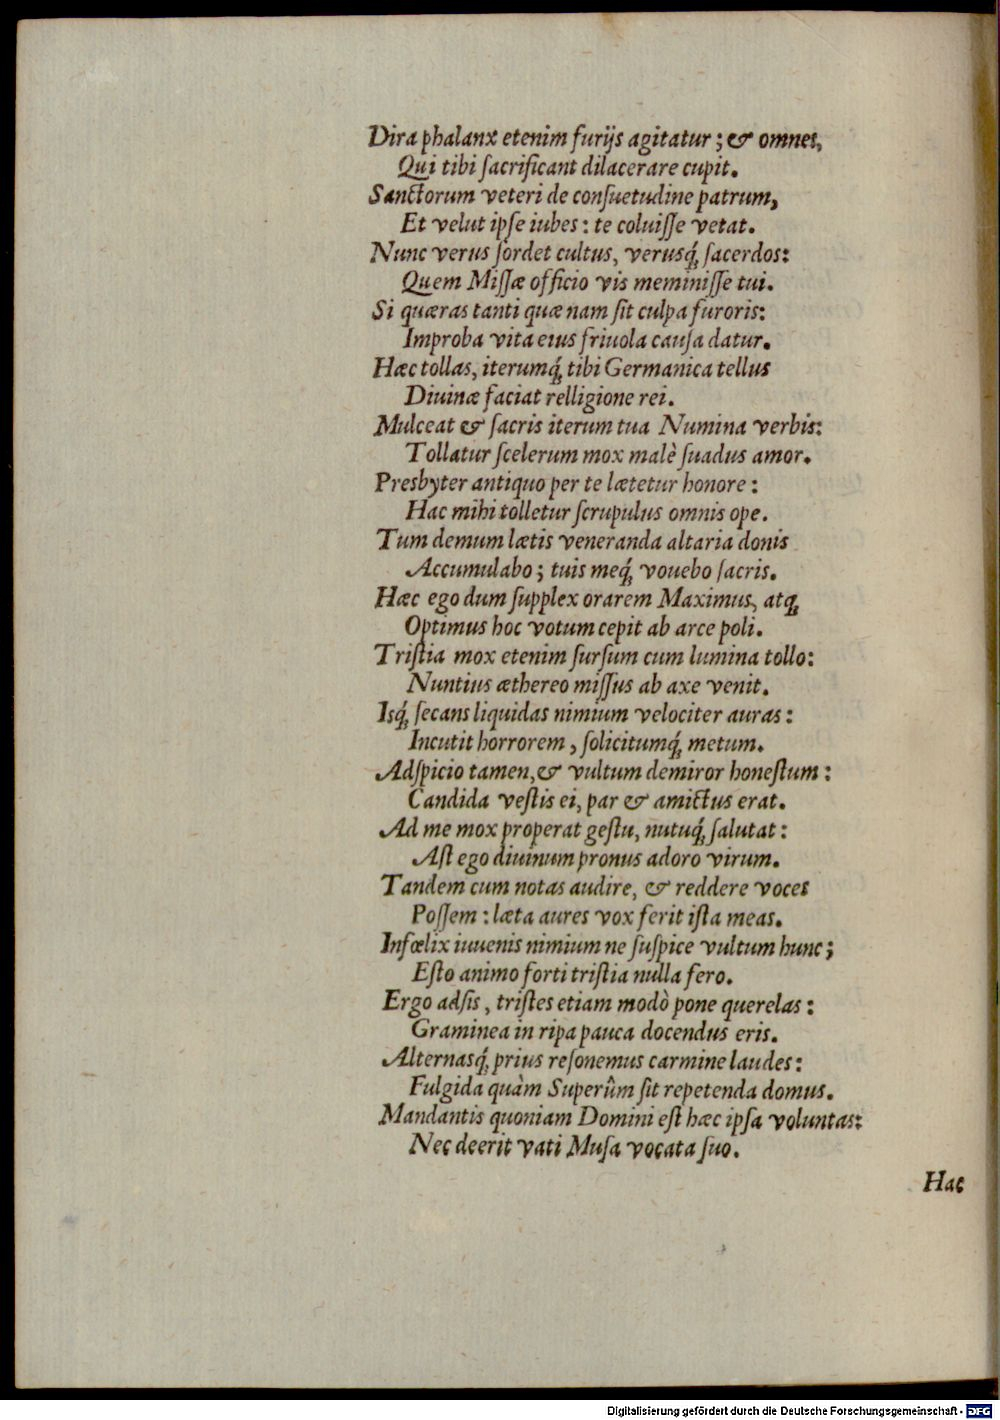 Dira phalanx etenim furijs agitatur; & omnes,
Qui tibi ſacrificant dilacerare cupit.
Sanctorum veteri de conſuetudine patrum,
Et velut ipſe iubes: te coluiſſe vetat.
Nunc verus ſordet cultus, verusq́ꝫ ſacerdos:
Quem Miſſæ officio vis meminiſſe tui.
Si quæras tanti quæ nam ſit culpa furoris:
Improba vita eius friuola cauſa datur.
Hæc tollas, iterumq́ꝫ tibi Germanica tellus
Diuinæ faciat relligione rei.
Mulceat & ſacris iterum tua Numina verbis:
Tollatur ſcelerum mox malè ſuadus amor.
Presbyter antiquo per te lætetur honore:
Hac mihi tolletur ſcrupulus omnis ope.
Tum demum lætis veneranda altaria donis
Accumulabo; tuis meq́ꝫ vouebo ſacris.
Hæc ego dum ſupplex orarem Maximus, atqꝫ
Optimus hoc votum cepit ab arce poli.
Triſtia mox etenim ſurſum cum lumina tollo:
Nuntius æthereo miſſus ab axe venit.
Isq́ꝫ ſecans liquidas nimium velociter auras:
Incutit horrorem, ſolicitumq́ꝫ metum.
Adſpicio tamen, & vultum demiror honeſtum:
Candida veſtis ei, par & amictus erat.
Ad me mox properat geſtu, nutuq́ꝫ ſalutat:
Aſt ego diuinum pronus adoro virum.
Tandem cum notas audire, & reddere voces
Poſſem: læta aures vox ferit iſta meas.
Infœlix iuuenis nimium ne ſuſpice vultum hunc;
Eſto animo forti triſtia nulla fero.
Ergo adſis, triſtes etiam modò pone querelas:
Graminea in ripa pauca docendus eris.
Alternasq́ꝫ prius reſonemus carmine laudes:
Fulgida quàm Superûm ſit repetenda domus.
Mandantis quoniam Domini eſt hæc ipſa voluntas:
Nec deerit vati Muſa vocata ſuo.
Hac
Digitalisierung gefördert durch die Deutsche Forschungsgemeinschaft - DFG